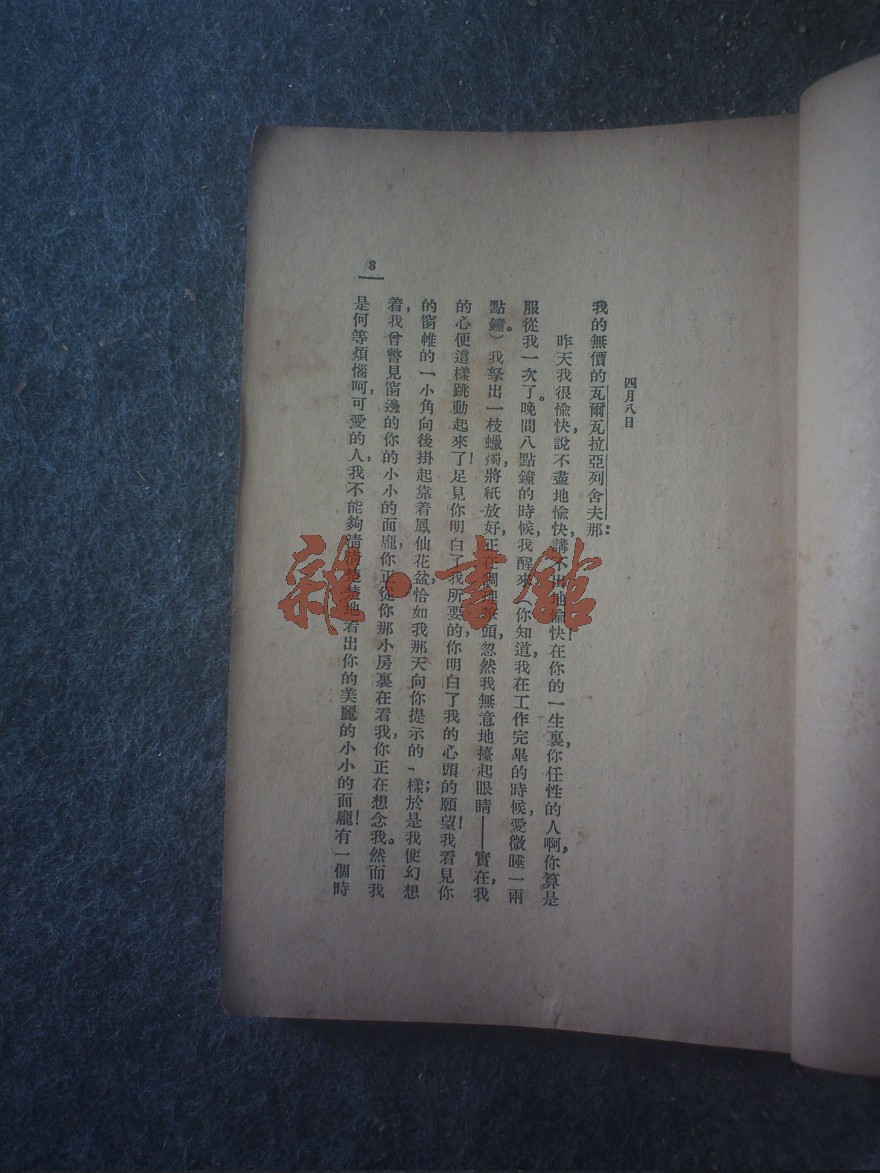 四月八日
我的無價的瓦爾瓦拉亞列舍夫那：
昨天我很愉快，說不盡地愉快，講不出地愉快！在你的一生裏，你任性的人啊，你算是
服從我一次了。晚間八點鐘的時候，我醒來（你知道，我在工作完畢的時候，愛微睡一兩
點鐘。）我拏出一枝蠟燭，將紙放好，正在 頭，忽然我無意地擡起眼睛——實在，我
的心便這樣跳動起來了！足見你明白了我所要的，你明白了我的心頭的願望！我看見你
的窗帷的一小角向後掛起，靠着鳳仙花盆，恰如我那天向你提示的一樣；於是我便幻想
着，我曾瞥見窗邊的你的小小的面龐，你正從你那小房裏在看我，你正在想念我。然而我
是何等煩惱呵，可愛的人，我不能夠清清楚楚地看出你的美麗的小小的面龐！有一個時
3
雜·書館